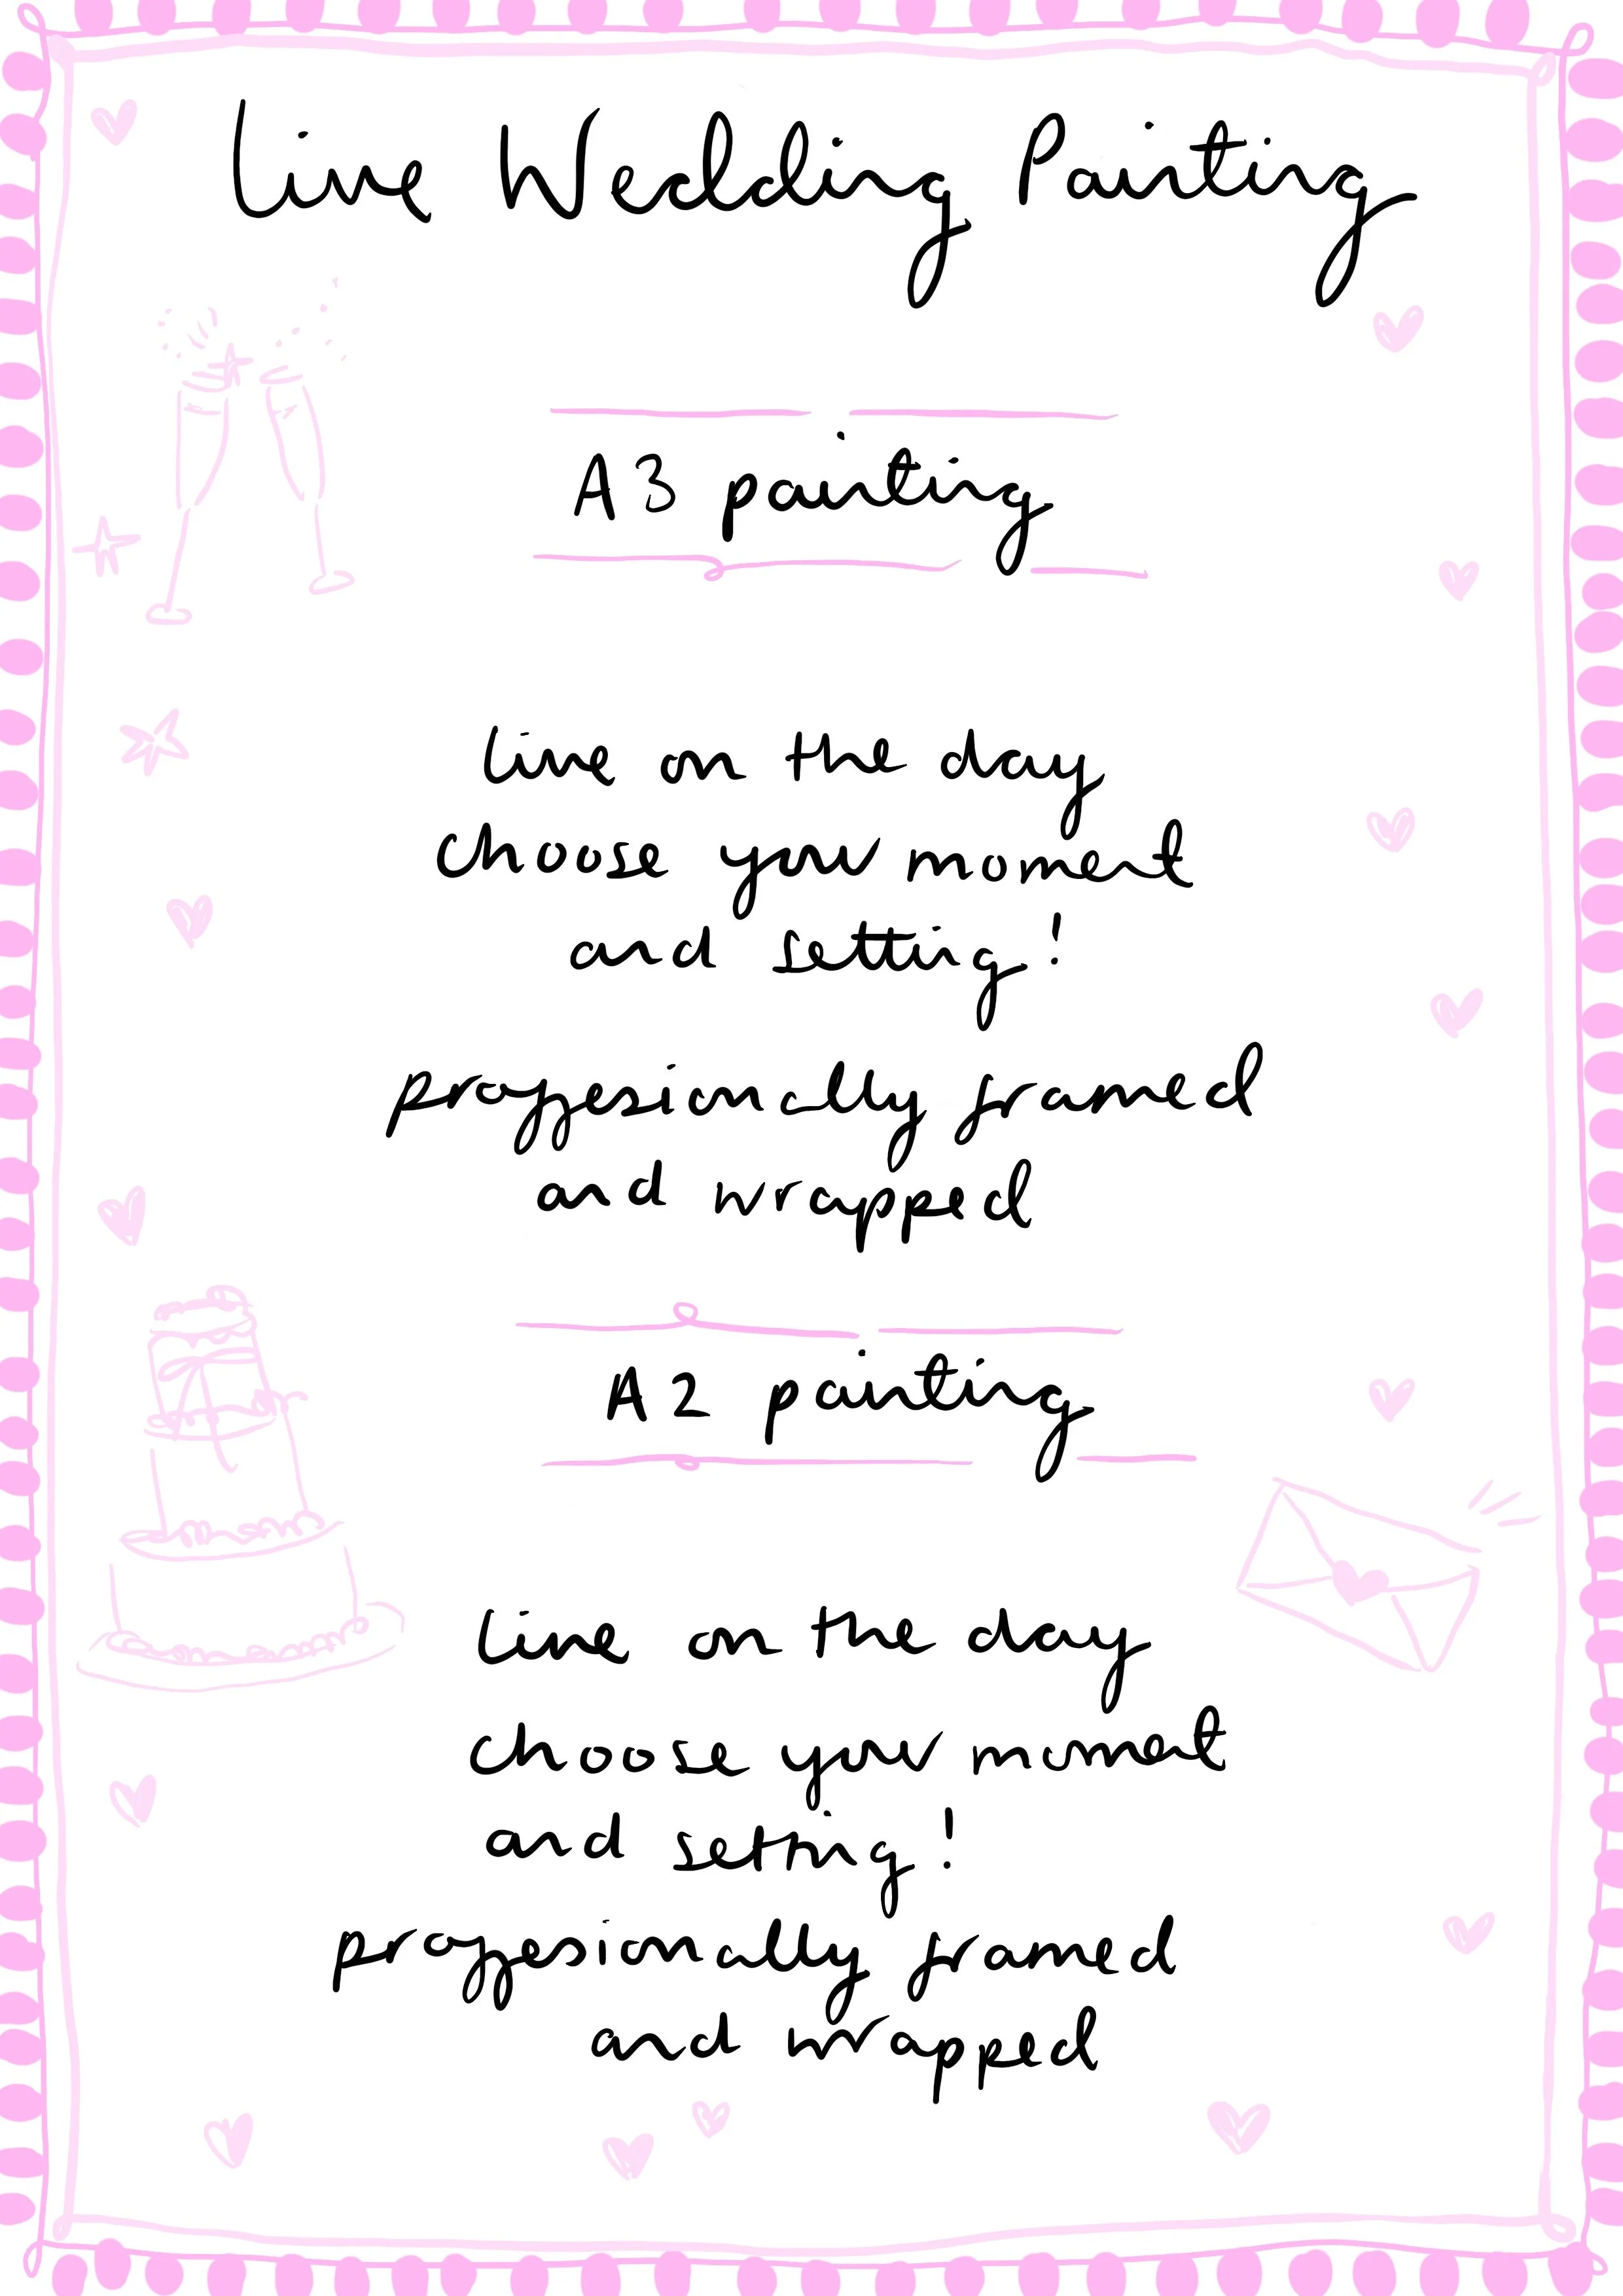 Live Wedding Painting
A3 painting
live on the day
choose your moment
and setting!
proffesionally framed
and wrapped
A2 painting
live on the day
choose your moment
and setting!
proffesionally framed
and wrapped